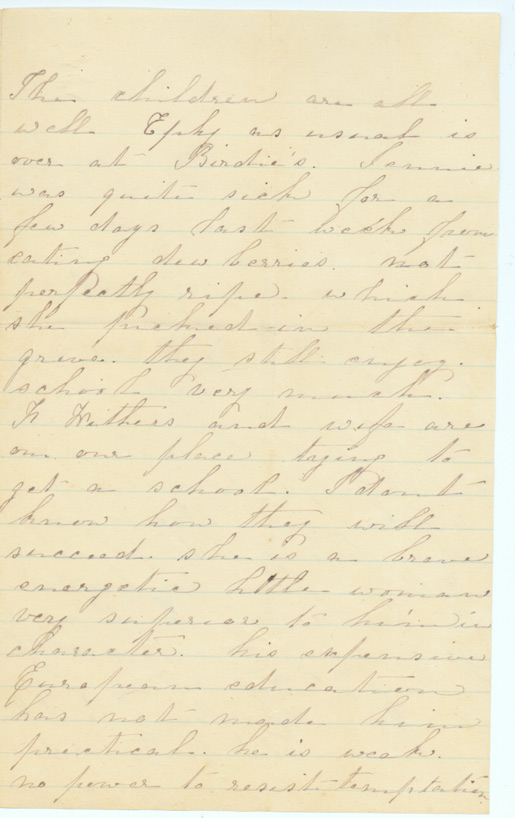 The children are all
well Effy as usual is
over at Birdie's. Jennie
was quite sick for a
few days last week from
eating dew berries. not
perfectly ripe. which
she picked in the
grove. they still enjoy.
school very much.
Withers and wife are
on our place trying to
get a school. I dont
know how they will
succeed. she is a brave
energetic little woman
very superior to him in
character. his expensive
European education
has not made him
practical. he is weak.
no power to resist temptation